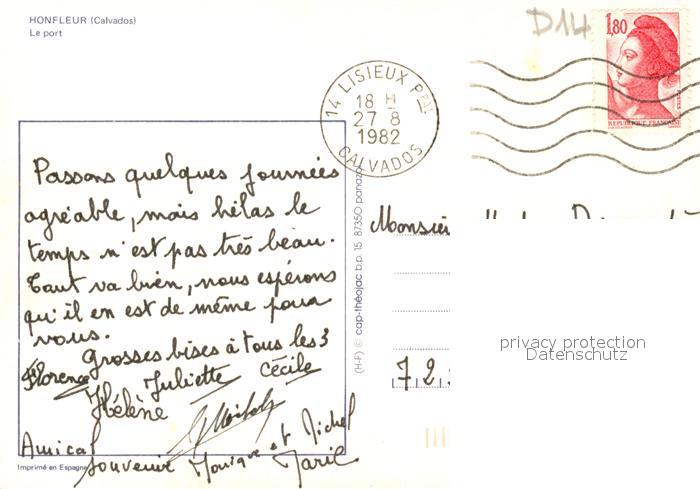 HONFLEUR (Calvados)
Le port
D14
1,80
POSTES
REPUBLIQUE FRANÇAISE
14 LISIEUX Ppal
18 H
27 8
1982
CALVADOS
Passons quelques journées
agréable, mais hélas le
temps n'est pas très beau.
Tout va bien, nous espérons
qu'il en est de même pour
vous.
Grosses bises à tous les 3
Florence Juliette Cécile
Hélène
Amical
souvenir Monique et Michel
Marie
Imprimé en Espagne
(H-F) © cap-théojac b.p. 15 87350 panazol
Monsieur
72
privacy protection
Datenschutz